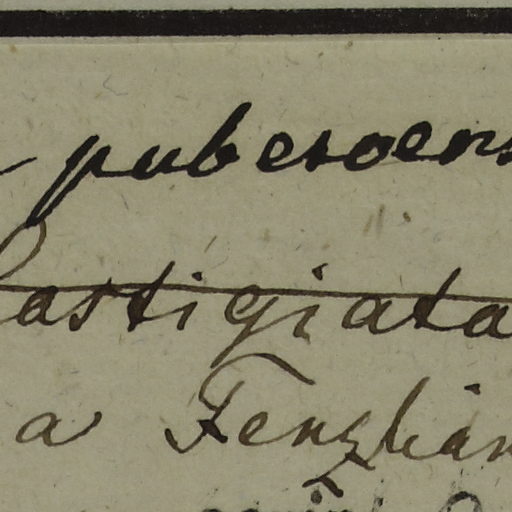 puberoens
fastigiata
a Fenzlian